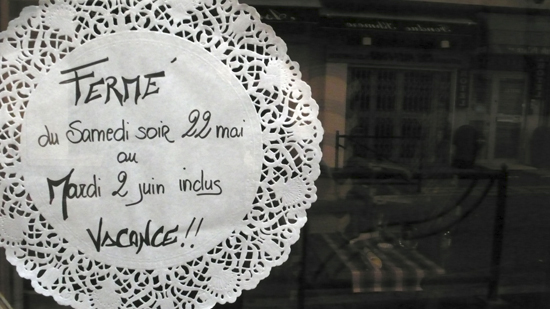 FERMÉ
du Samedi soir 22 mai
au
Mardi 2 juin inclus
VACANCE!!